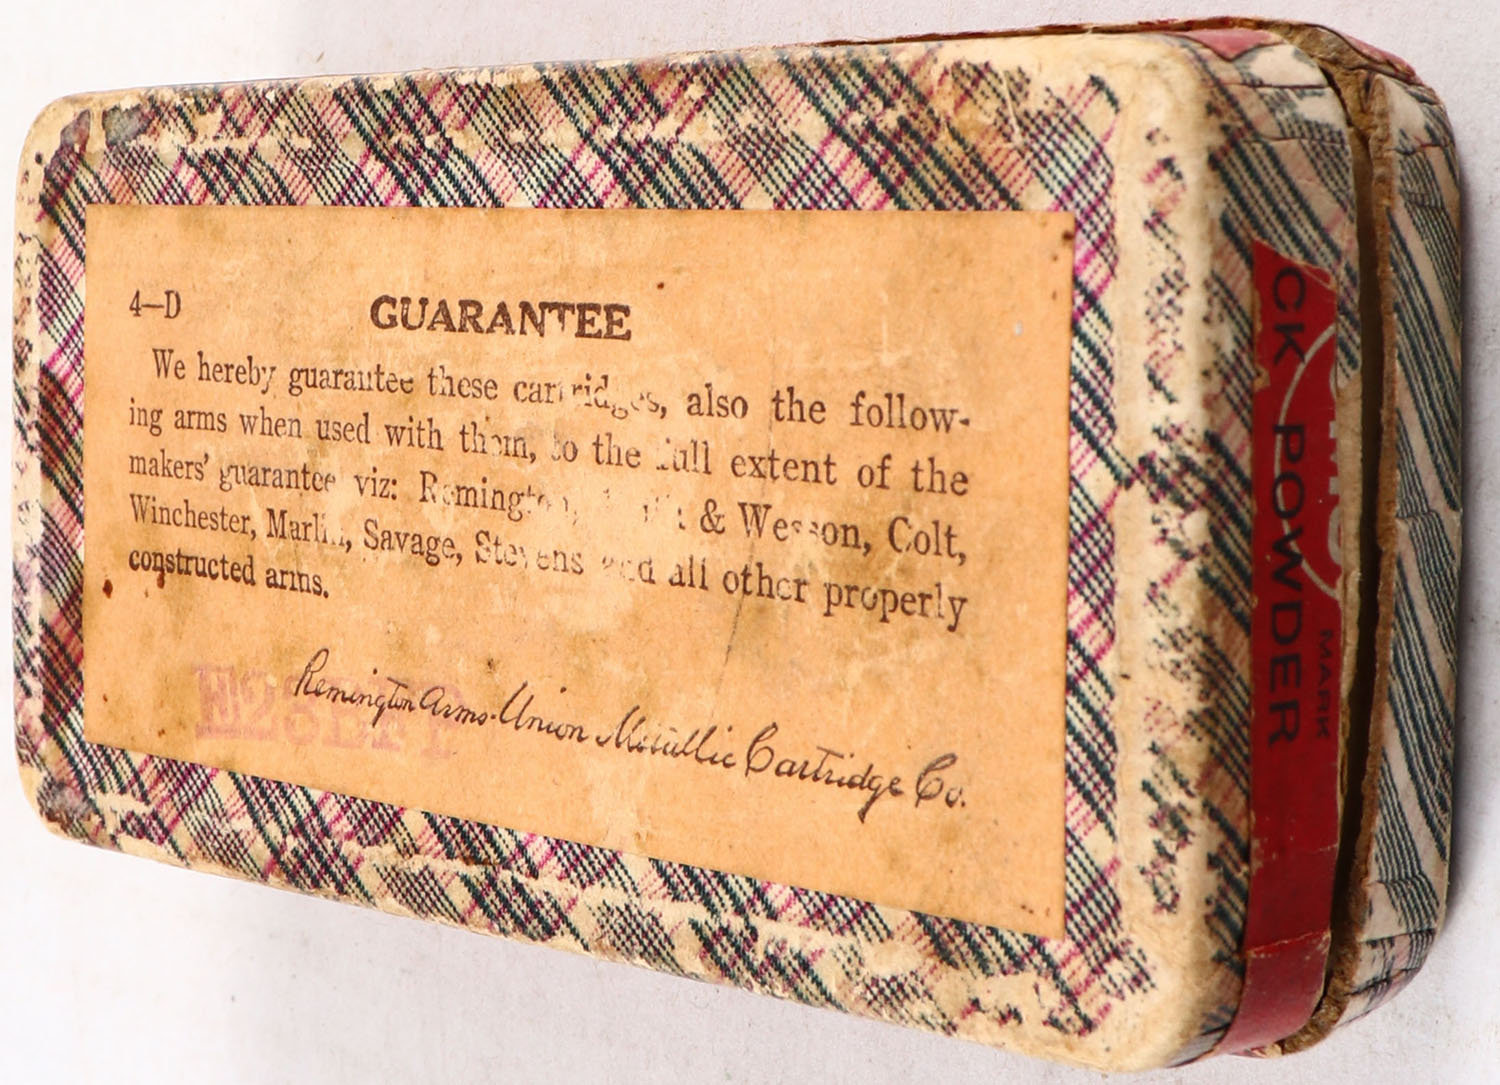 4—D
GUARANTEE
We hereby guarantee these cartridges, also the follow-
ing arms when used with them, to the full extent of the
makers' guarantee viz: Remington, & Wesson, Colt,
Winchester, Marlin, Savage, Stevens and all other properly
constructed arms.
Remington Arms-Union Metallic Cartridge Co.
CK POWDER
MARK